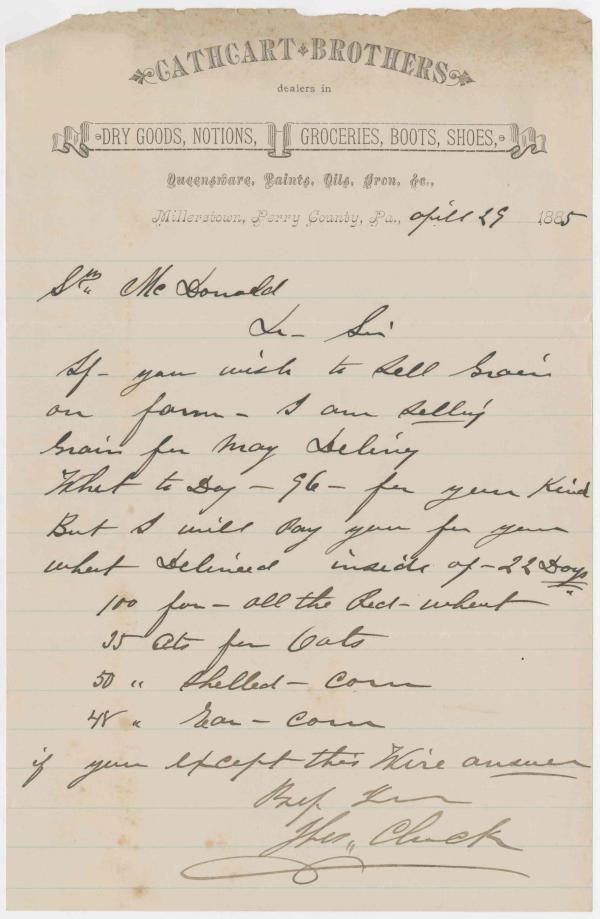 CATHCART BROTHERS
dealers in
DRY GOODS, NOTIONS, GROCERIES, BOOTS, SHOES,
Queensware, Paints, Oils, Iron, &c.,
Millerstown, Perry County, Pa., Aprill 29 1885
Mc Donald
Dr - Sir
If - you wish to Sell Grain
on farm - I am Selling
Grain for May Delivy
Whet to Day - 96 - for your Kind
But I will Pay you for your
wheat Delivered inside of - 22 Days
100 for - all the Red - wheat
35 cts for Oats
50 " Shelled - corn
48 " Ear - corn
if you except this Wire answer
Thos,, Chuck